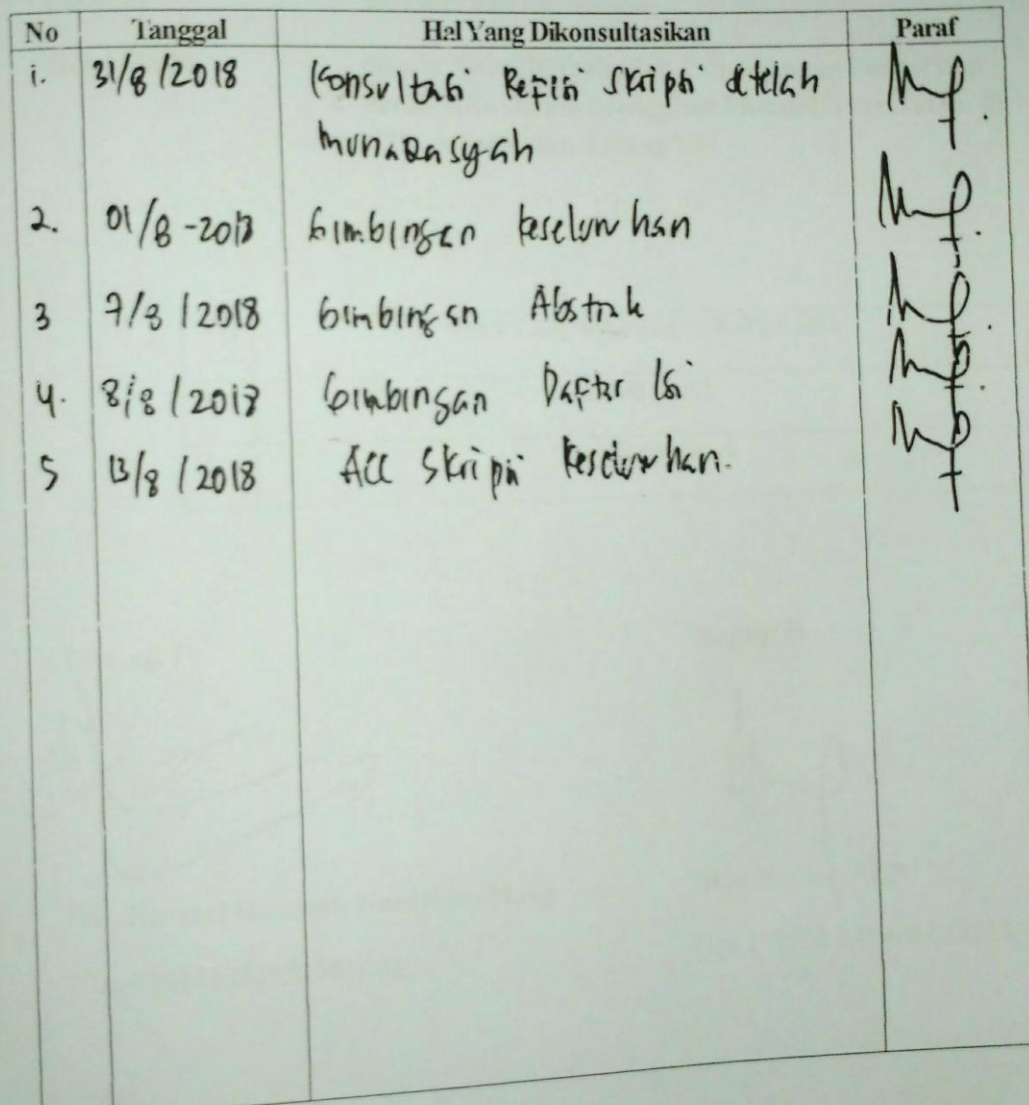 No Tanggal Hal Yang Dikonsultasikan Paraf
1. 31/8/2018 Konsultasi Refisi Skripsi setelah
munaqasyah
2. 01/8-2018 bimbingan keseluruhan
3 7/8/2018 bimbingan Abstrak
4. 8/8/2018 bimbingan Daftar Isi
5 13/8/2018 ACC Skripsi keseluruhan.